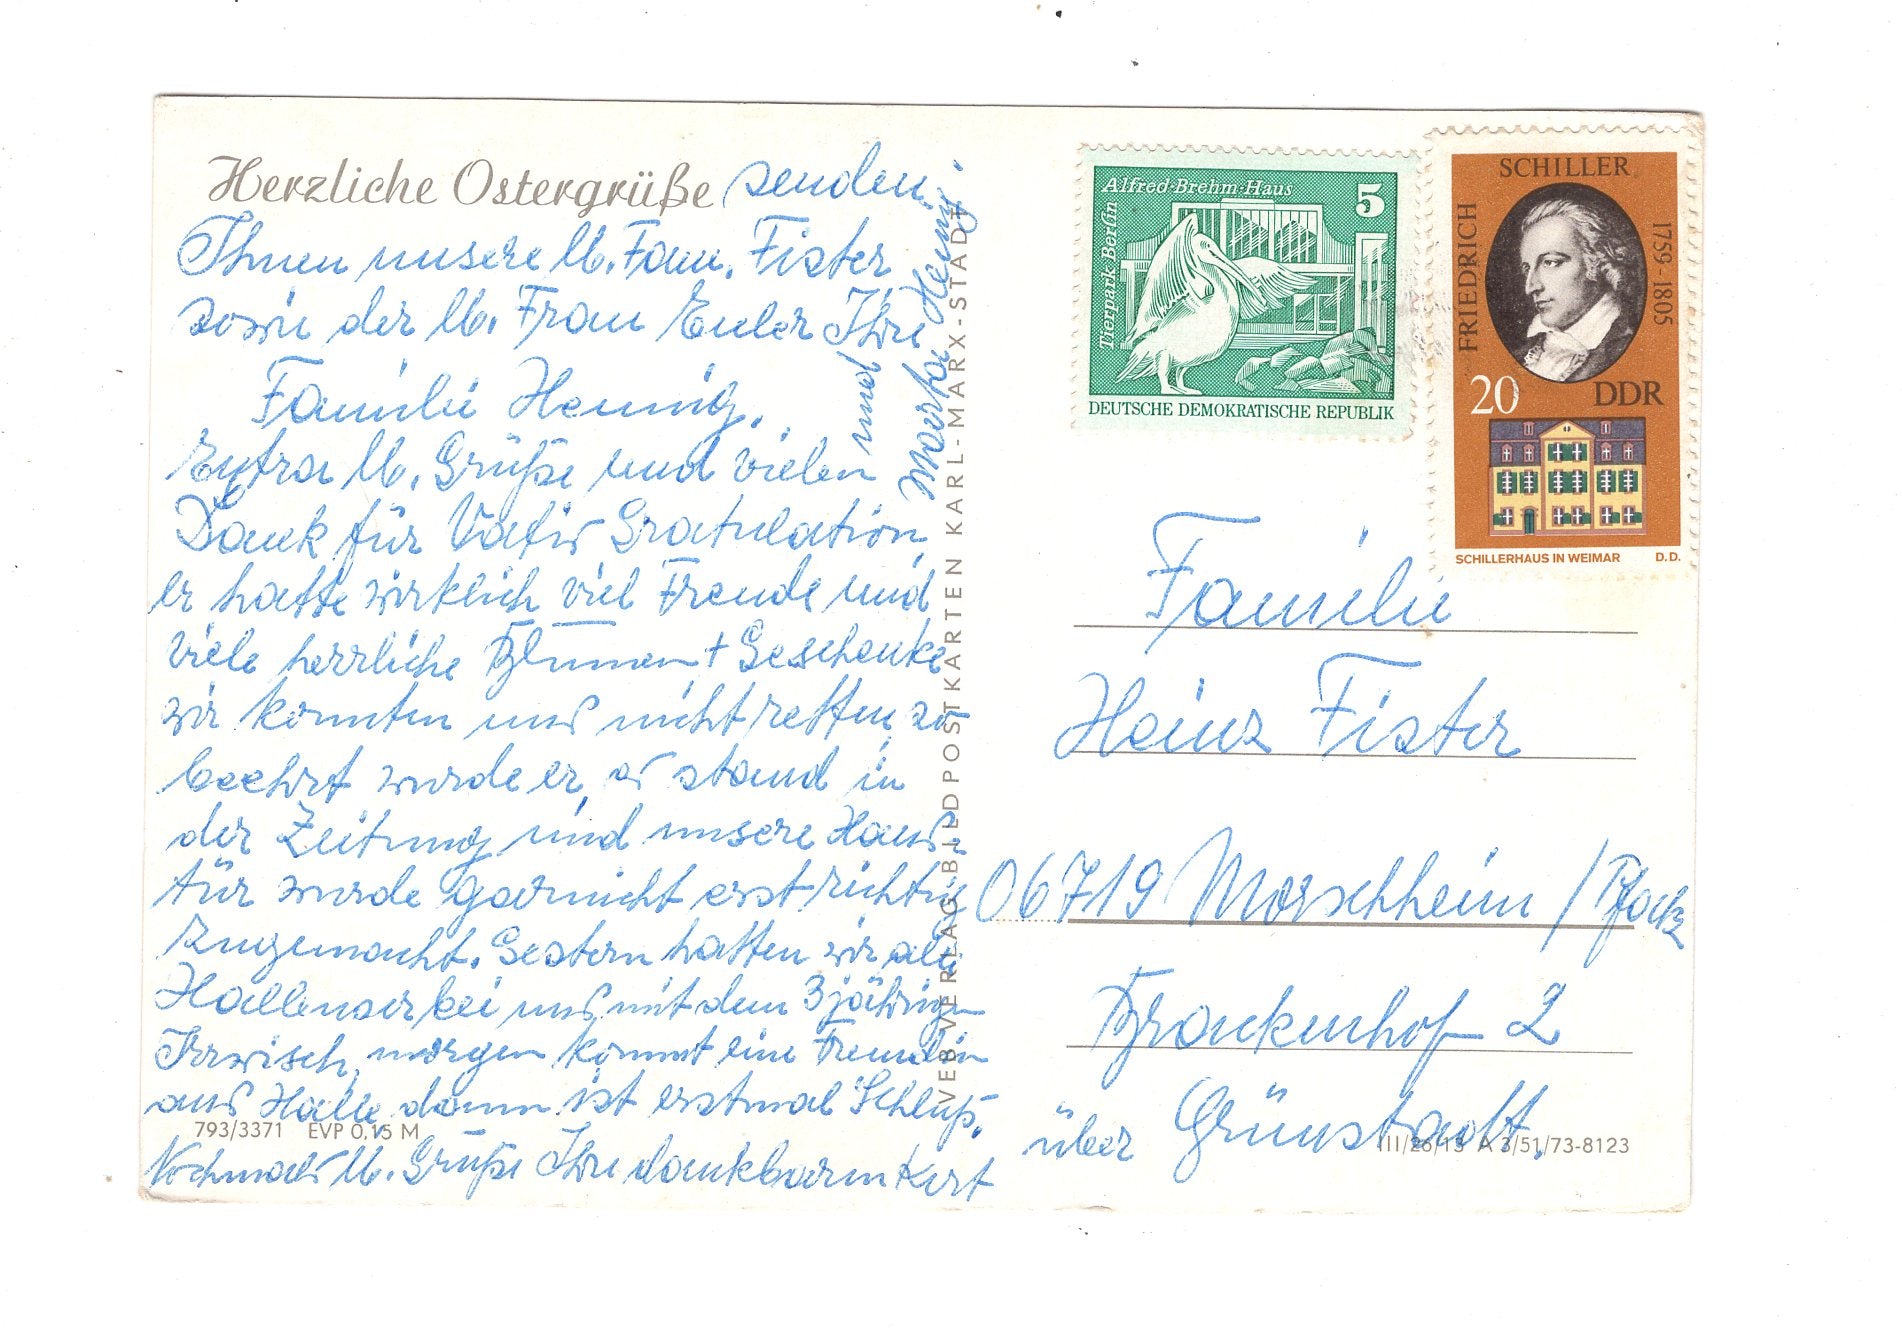 Herzliche Ostergrüße senden
Ihnen unsere lb. Fam. Fister,
sowie der lb. Frau Euler Ihre
Familie Hennig.
Extra lb. Grüße und vielen
Dank für Vatis Gratulation,
er hatte wirklich viel Freude und
viele herrliche Blumen + Geschenke
wir konnten uns nicht retten, so
beehrt wurde er, es stand in
der Zeitung und unsere Haus-
tür wurde garnicht erst richtig
zugemacht. Gestern hatten wir alle
Hallenser bei uns mit dem 3jährigen
Irrwisch, morgen kommt eine Freundin
aus Halle, dann ist erstmal Schluß.
Nochmals lb. Grüße Ihre dankbaren Kurt
und
Marta Hennig
793/3371 EVP 0,15 M
VEB VERLAG BILDPOSTKARTEN KARL-MARX-STADT
Alfred-Brehm-Haus
5
Tierpark Berlin
DEUTSCHE DEMOKRATISCHE REPUBLIK
SCHILLER
FRIEDRICH
1759-1805
20 DDR
SCHILLERHAUS IN WEIMAR D.D.
Familie
Heinz Fister
06719 Morschheim / Pfalz
Brockenhof 2
über Grünstadt.
III/26/13 A 3/51/73-8123